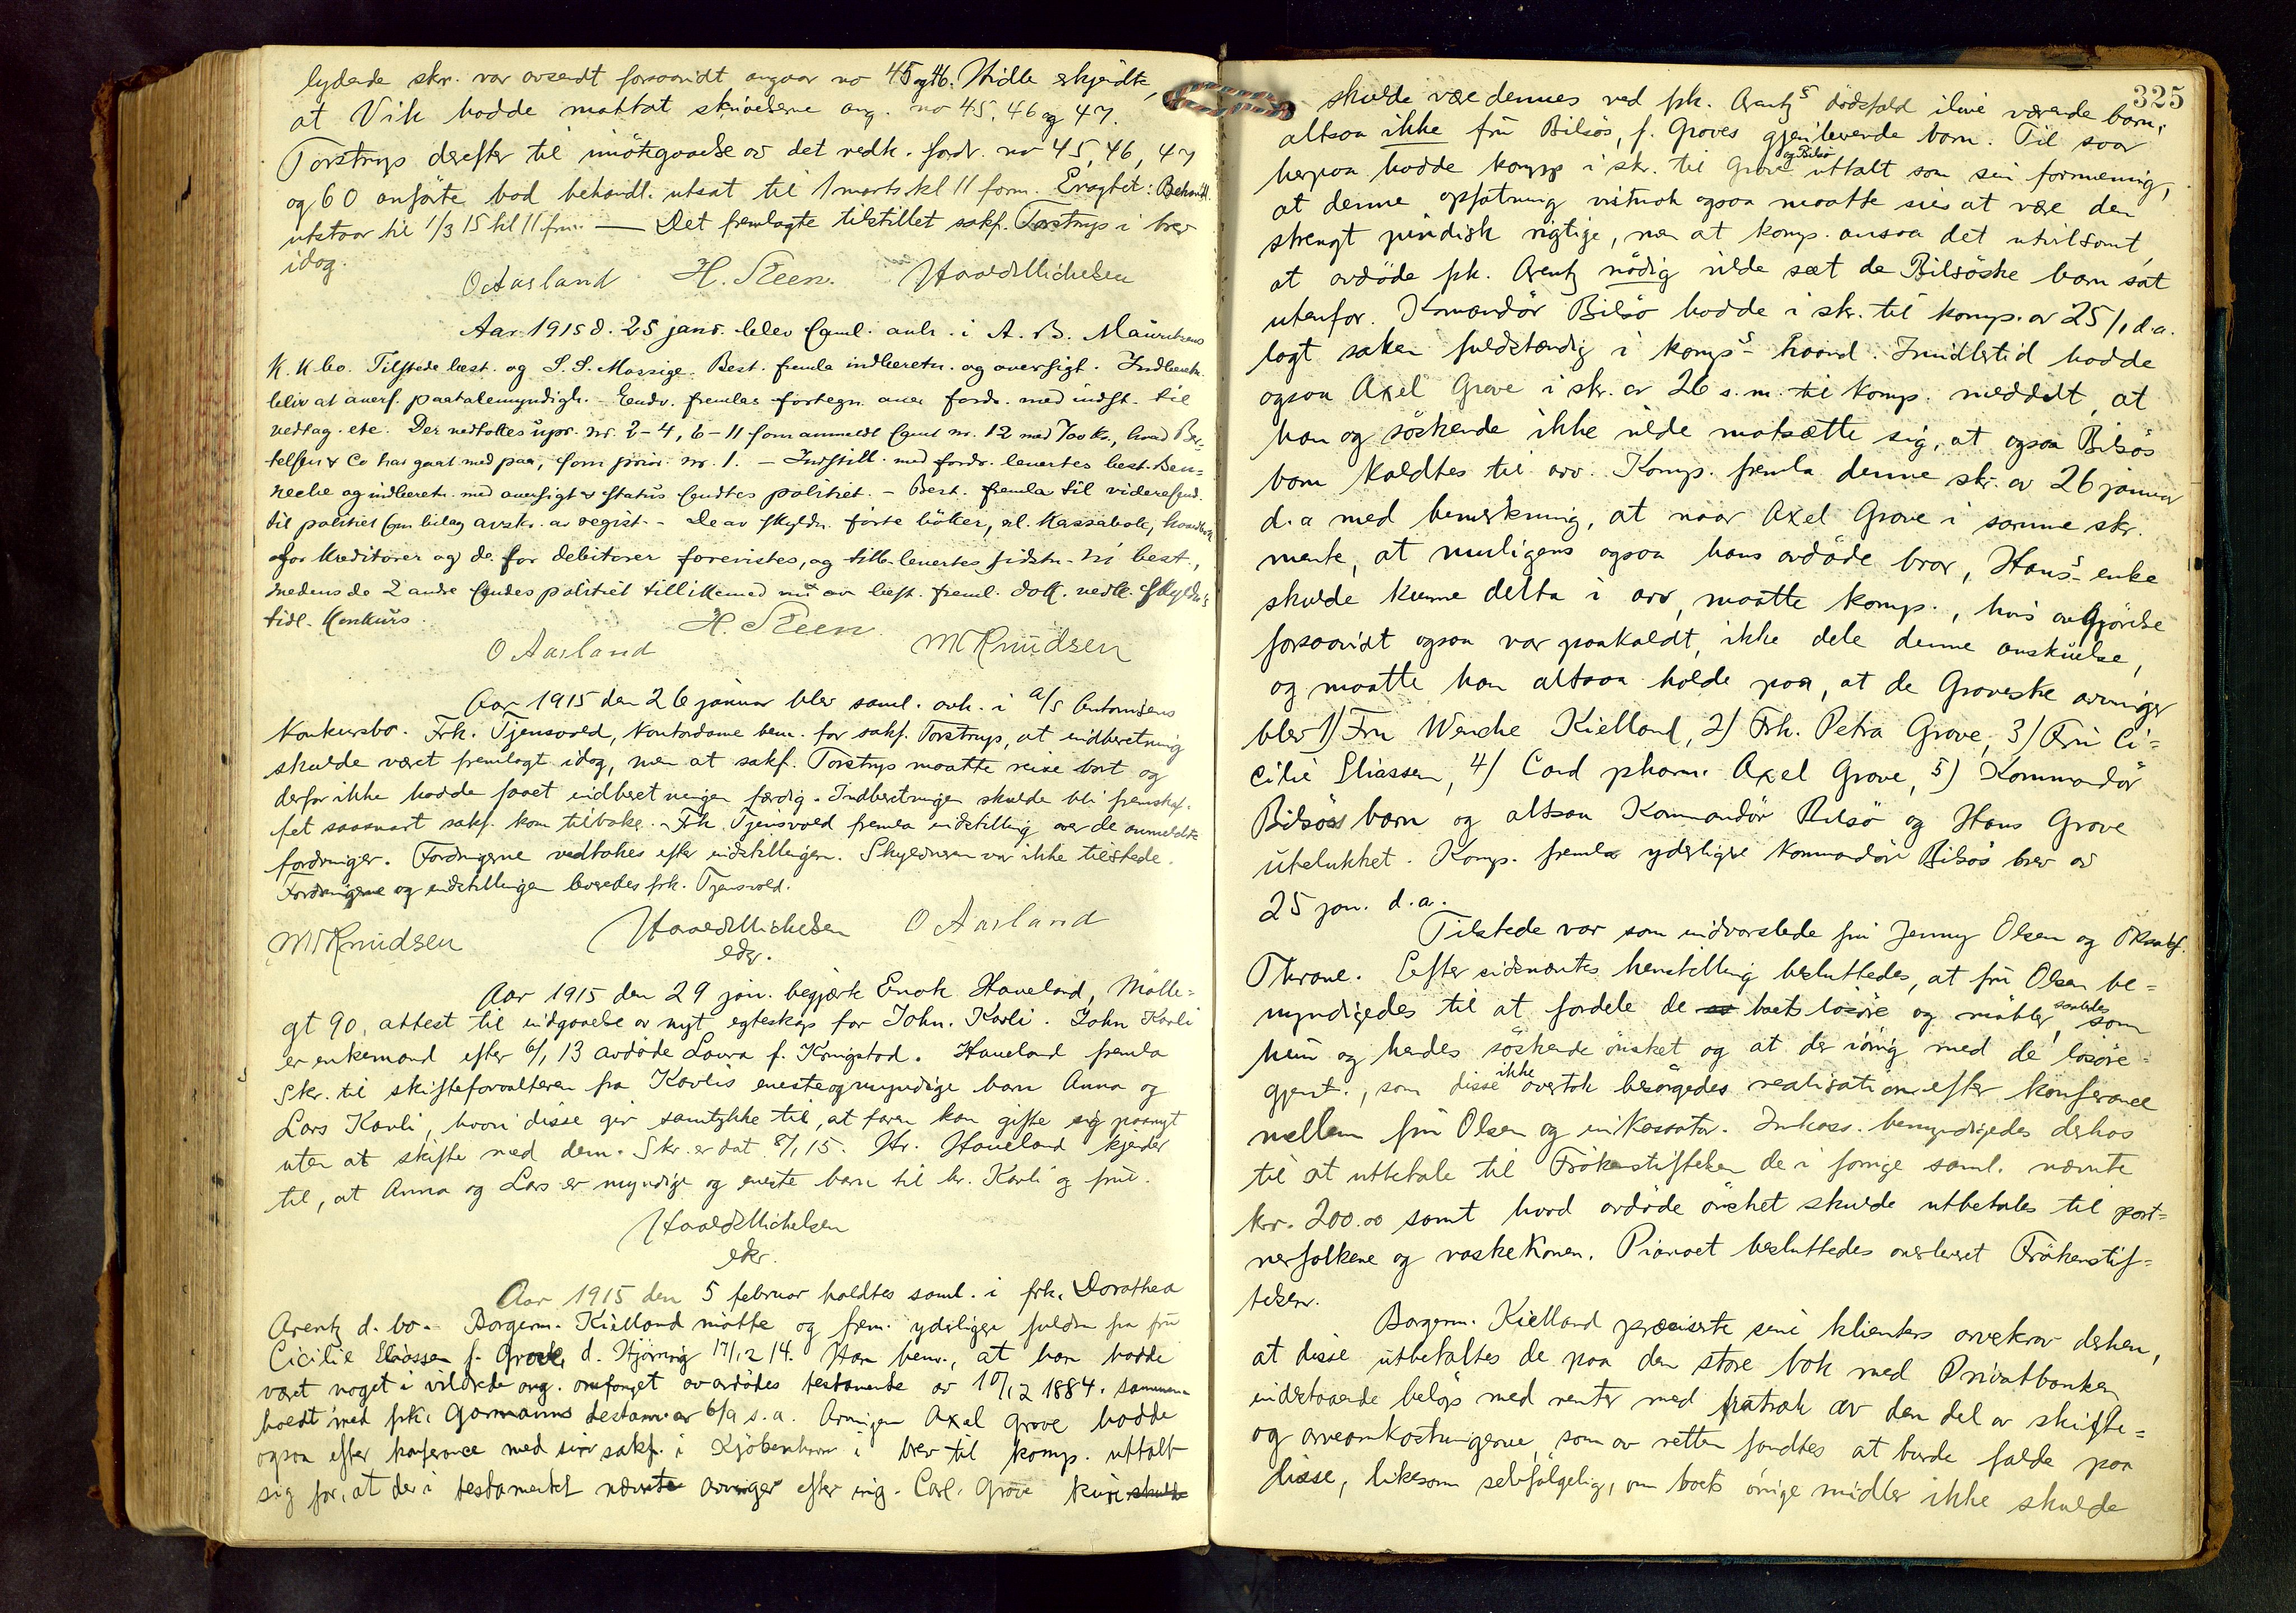 lydende skr. var avsendt forsaavidt angaar no 45 og 46. Hidle erkjendte,
at Vik hadde mottat skrivelserne ang. no 45, 46 og 47.
Torstrup derefter til imøtegaaelse av det vedk. fordr. no 45, 46, 47
og 60 anførte bad behandl. utsat til 1 marts kl 11 form. Eragtet: Behandl.
utstaar til 1/3 15 kl 11 fm. — Det fremlagte tilstillet sakf. Torstrup i brev
idag.
O Aasland H. Steen. Harald Michelsen
Aar 1915 d. 25 janr. blev saml. avh. i A. B. Mauritzens
K. K. bo. Tilstede best. og S. S. Mossige. Best. fremla indberetn. og oversigt. Indberetn.
bliv at oversc. paatalemyndigh. - Endv. fremlas fortegn. over fordr. med indst. til
vedtag. etc. Der vedtottes upr. nr. 2-4, 6-11 som anmeldt samt nr. 12 med 700 kr., hvad Ber-
telsen & Co har gaat med paa, som prior. nr. 1. - Indstill. med fordr. levertes best. Ben-
neche og indberetn. med oversigt & status sendtes politiet. - Best. fremla til videresend.
til politiet som bilag avskr. av regist. - De av skyldn. førte bøker, al. Kassabok,
for kreditorer og do. for debitorer forevistes, og tilb. levertes sidstn. til best.,
medens de 2 andre sendes politiet tillikemed nu av best. freml. dok. vedk. skyldn.s
tidl. Konkurs.
O Aasland H. Steen M Knudsen
Aar 1915 den 26 januar blev saml. avh. i A/S Antonisens
Konkursbo. Frk. Tjensvold, kontordame bem. for sakf. Torstrup, at indberetning
skulde været fremlagt idag, men at sakf. Torstrup maatte reise bort og
derfor ikke hadde faaet indberetningen færdig. Indberetningen skulde bli fremskaf-
fet saasnart sakf. kom tilbake. - Frk. Tjensvold fremla indstilling over de anmeldte
fordringer. Fordringerne vedtokes efter indstillingen. Skyldneren var ikke tilstede.
Fordringerne og indstillingen leveredes frk. Tjensvold.
M Knudsen Harald Michelsen O Aasland
edsv.
Aar 1915 den 29 jan. begjærte Enok Haveland, Mølle-
gt 90, attest til indgaaelse av nyt egteskap for John. Kavli. John Kavli
er enkemand efter 6/1 13 avdøde Laura f. Kringstad. Haveland fremla
Skr. til skifteforvalteren fra Kavlis eneste og myndige barn Anna og
Lars Kavli, hvori disse gir samtykke til, at faren kan gifte sig paanyt
uten at skifte med dem. Skr. er dat. 8/1 15. Hr. Haveland kjender
til, at Anna og Lars er myndige og eneste barn til hr. Kavli og frue.
Harald Michelsen
edsv.
Aar 1915 den 5 februar holdtes saml. i frk. Dorothea
Arentz d. bo. Borgerm. Kielland møtte og frem. yderligere fuldm fra fru
Cicilie Eliassen f. Grove, d. Hjørring 17/12 14. Han bem., at han hadde
været noget i vildrede ang. omfanget av avdødes testamente av 10/12 1884, sammen-
holdt med frk. Garmanns testam. av 6/9 s.a. Arvingen Axel Grove hadde
ogsaa efter konferance med sin sakf. i Kjøbenhavn i brev til komp. uttalt
sig for, at der i testamentet nævnte arvinger efter ing. Carl. Grove kun skulde
325
skulde være dennes ved frk. Arentz's dødsfald ilive værende barn,
altsaa ikke fru Bilsøs, f. Groves gjenlevende barn. Til svar
herpaa hadde komp i skr. til Grove og Bilsø uttalt som sin formening,
at denne opfatning vistnok ogsaa maatte sies at være den
strengt juridisk rigtige, men at komp. ansaa det utvilsomt,
at avdøde frk. Arentz nødig vilde sæt de Bilsøske barn sat
utenfor. Komandør Bilsø hadde i skr. til komp. av 25/1 d.a.
lagt saken fuldstændig i komp's haand. Imidlertid hadde
ogsaa Axel Grove i skr. av 26 s.m. til komp. meddelt, at
han og søskende ikke vilde motsætte sig, at ogsaa Bilsøs
barn kaldtes til arv. Komp. fremla denne skr. av 26 januar
d.a med bemerkning, at naar Axel Grove i samme skr.
mente, at muligens ogsaa hans avdøde bror, Hans's enke
skulde kunne delta i arv, maatte komp., hvis avgjørelse
forsaavidt ogsaa var paakaldt, ikke dele denne anskuelse,
og maatte han altsaa holde paa, at de Groveske arvinger
blev 1) Fru Wenche Kielland, 2) Frk. Petra Grove, 3) Fru Ci-
cilie Eliassen, 4) Cand pharm. Axel Grove, 5) Kommandør
Bilsøs barn og altsaa Kommandør Bilsø og Hans Grove
utelukket. Komp. fremla yderligere kommandør Bilsøs brev av
25 jan. d.a.
Tilstede var som indvarslede fru Jenny Olsen og
Thrane. Efter sidnævntes henstilling besluttedes, at fru Olsen be-
myndigedes til at fordele de boets løsøre og møbler, saaledes som
hun og hendes søskende ønsket og at der iøvrig med de løsøre-
gjenst., som disse ikke overtok besørgedes realisation efter konferance
mellem fru Olsen og inkassator. Inkass. bemyndigedes derhos
til at utbetale til Frøkenstiftelsen de i forrige saml. nævnte
kr. 200.00 samt hvad avdøde ønsket skulde utbetales til port-
nerfolkene og vaskekonen. Pianoet besluttedes overleveret Frøkenstif-
telsen.
Borgerm. Kielland præciserte sine klienters arvekrav derhen,
at disse utbetaltes de paa den store bok med Privatbanken
indestaaende beløp med renter med fratrak av den del av skifte-
og arveomkostningerne, som av retten fandtes at burde falde paa
disse, likesom selvfølgelig, om boets øvrige midler ikke skulde